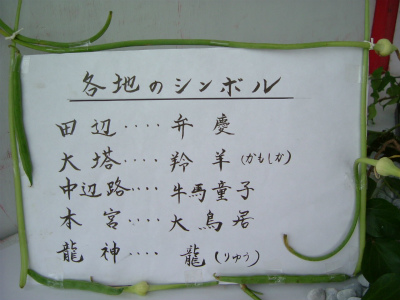 各地のシンボル
田辺‥‥弁慶
大塔‥‥羚羊(かもしか)
中辺路‥‥牛馬童子
本宮‥‥大鳥居
龍神‥‥龍(りゅう)